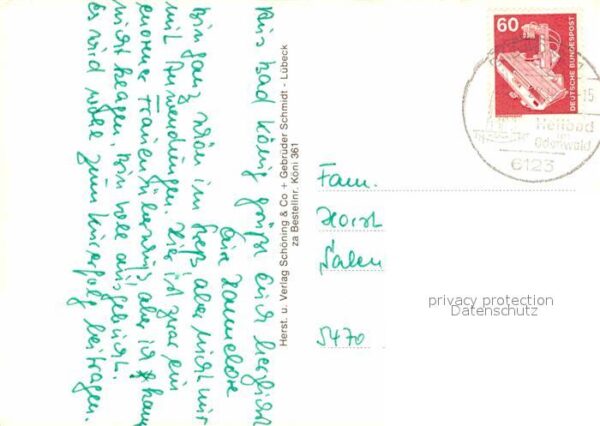 Aus Bad König grüßt Euch herzlichst
Eure Hannelore
Bin ganz schön im Streß aber nicht nur
mit Anwendungen. Hier ist zwar ein
enormer Frauenüberschuß aber ich kann
nicht klagen. Bin voll ausgebucht.
Es wird wohl zum Kurerfolg beitragen.
Herst. u. Verlag Schöning & Co + Gebrüder Schmidt - Lübeck
za Bestellnr. Köni 361
60
DEUTSCHE BUNDESPOST
15
Heilbad
Odenwald
6123
Fam.
Horst
5470
privacy protection
Datenschutz